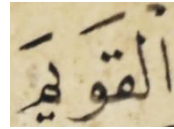 اْلقَوَيمَ